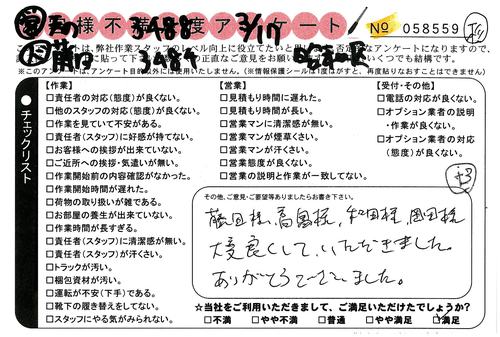 様不満度アンケート! No 058559
3488 3/17
前口 3484
ートは、弊社作業スタッフのレベル向上に役立てたいと
※このアンケートは、アンケート目的以外には使用いたしません。(※情報保護シールは1度はがすと、再度貼りなおすことはできません)
チェックリスト
【作業】
□責任者の対応(態度)が良くない。
□他のスタッフの対応(態度)が良くない。
□作業を見ていて不安がある。
□責任者(スタッフ)に好感が持てない。
□お客様への挨拶が出来ていない。
□ご近所への挨拶・気遣いが無い。
□作業開始前の内容確認がなかった。
□作業開始時間が遅れた。
□荷物の取り扱いが雑である。
□お部屋の養生が出来ていない。
□作業時間が長すぎる。
□責任者(スタッフ)に清潔感が無い。
□責任者(スタッフ)が汗くさい。
□トラックが汚い。
□梱包資材が汚い。
□運転が不安(下手)である。
□靴下の履き替えをしてない。
□スタッフにやる気がみられない。
【営業】
□見積もり時間に遅れた。
□見積もり時間が長い。
□営業マンに清潔感が無い。
□営業マンが煙草くさい。
□営業マンが汗くさい。
□営業態度が良くない。
□営業の説明と作業が一致してない。
【受付・その他】
□電話の対応が良くない。
□オプション業者の説明
・作業が良くない。
□オプション業者の対応
(態度)が良くない。
その他、ご意見・ご要望等ありましたらお書き下さい。
藤田様、高島様、和田様、岡田様
大変良くして、いただきました。
ありがとうございました。
★当社をご利用いただきまして、ご満足いただけたでしょうか?
□不満 □やや不満 □普通 □やや満足 ☑満足